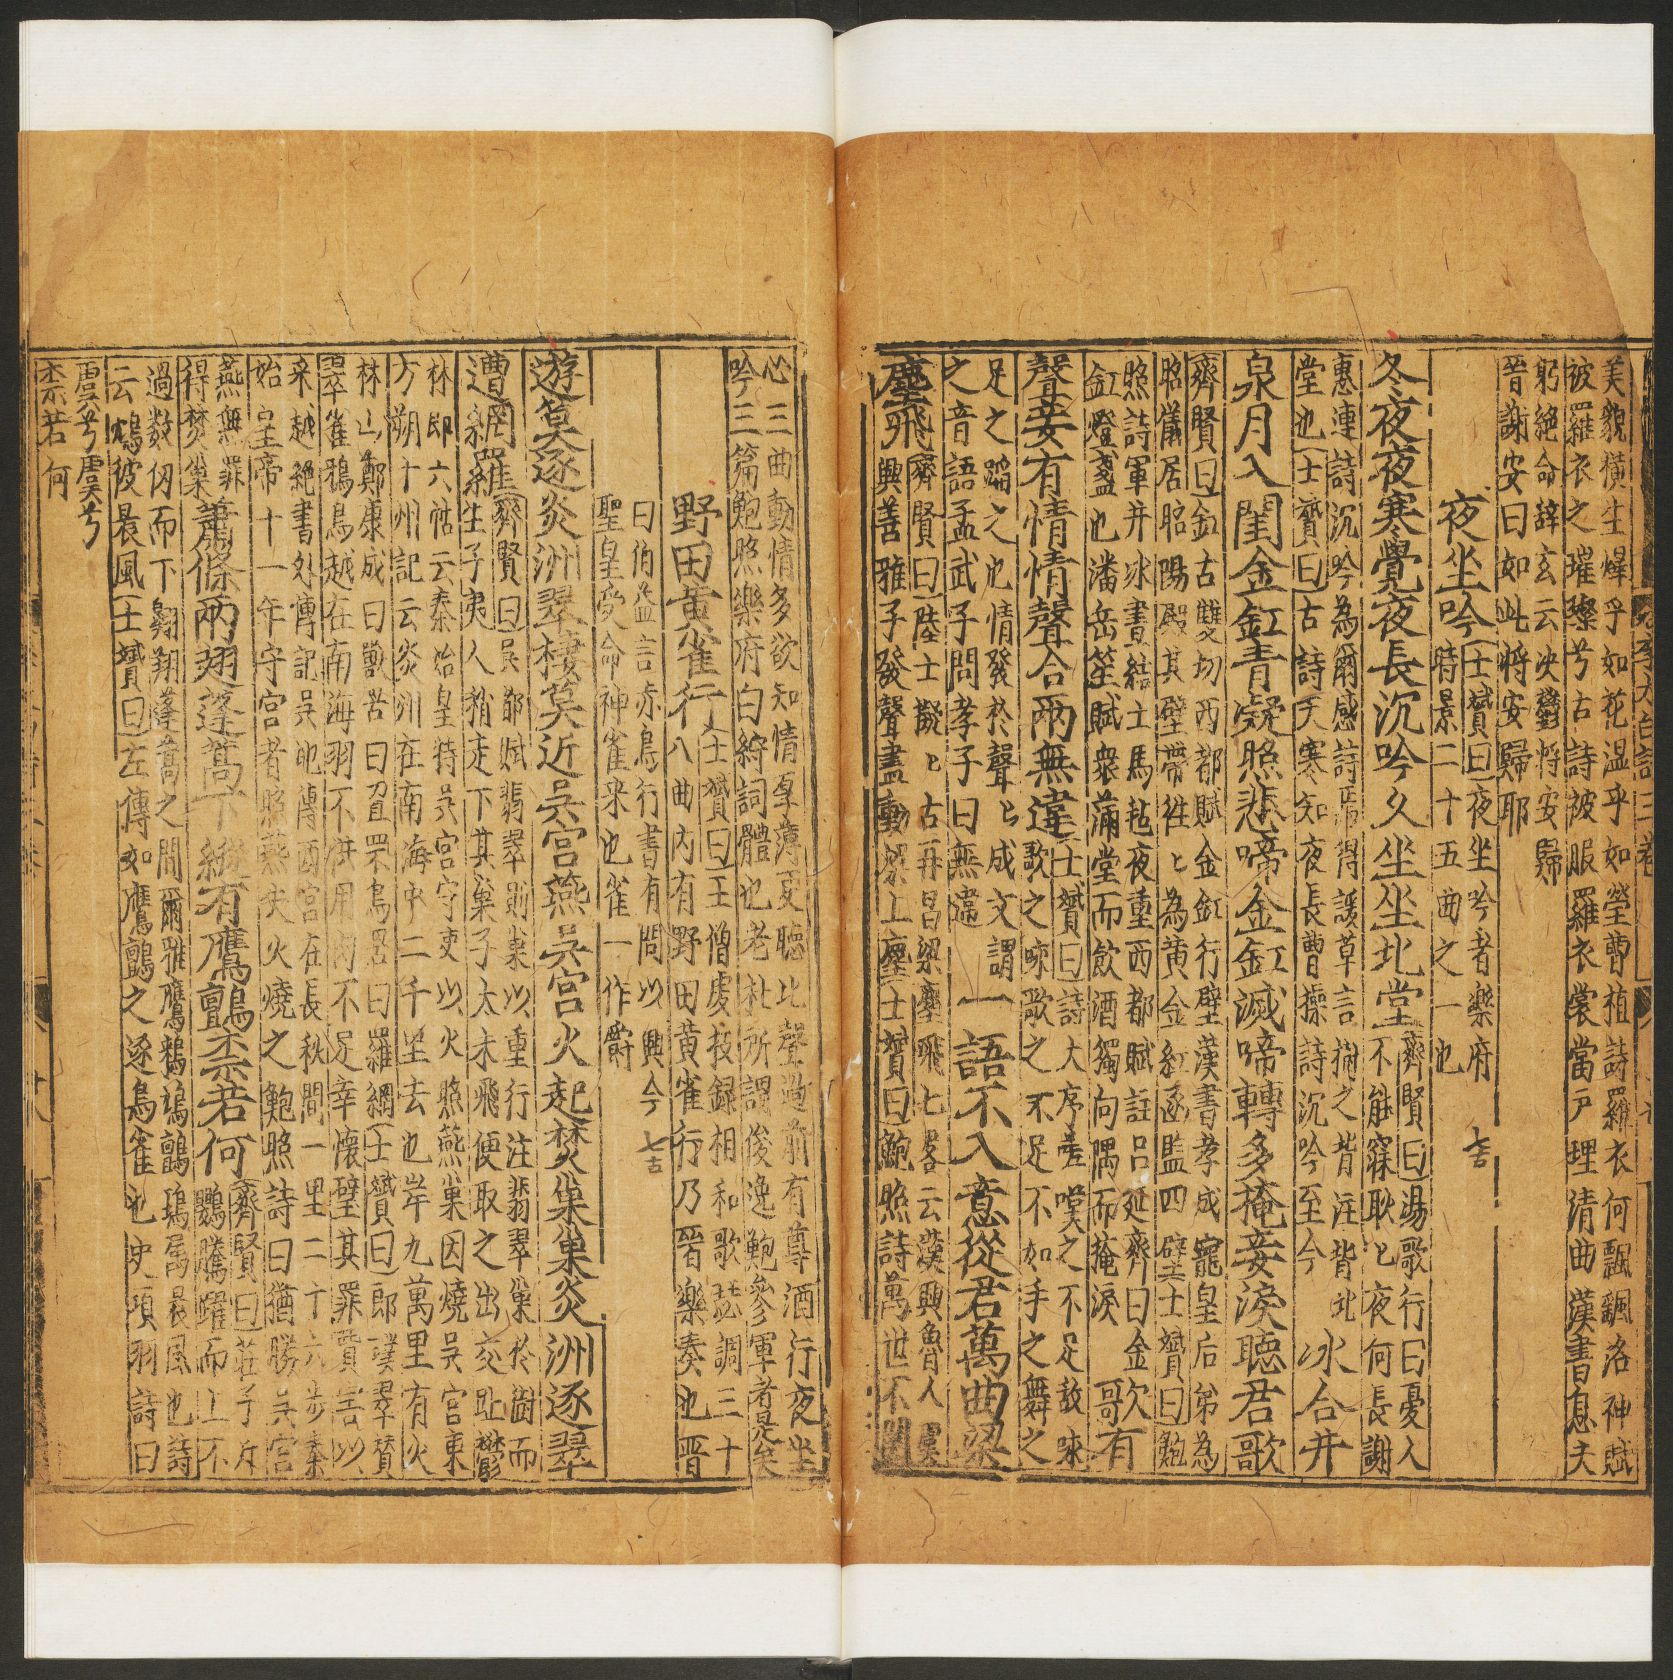 美貌橫生爗乎如花温乎如瑩曹植詩羅衣何飄颻洛神賦
披羅衣之璀璨兮古詩被服羅衣裳當戸理清曲漢書息夫
躬絶命辞玄云泱欝將安歸
晉謝安曰如此將安歸耶
夜坐吟士贇曰夜坐吟者樂府
時景二十五曲之一也
冬夜夜寒覺夜長沉吟久坐坐北堂齊賢曰湯歌行曰憂人
不能寐耿ヒ夜何長謝
惠連詩沉吟為爾感詩焉得諼草言樹之背注背北
堂也士贇曰古詩天寒知夜長曹操詩沉吟至今
氷合井
泉月入閨金釭青凝照悲啼金釭滅啼轉多掩妾淚聽君歌
齊賢曰釭古雙切西都賦金釭行壁漢書孝成寵皇后弟為
昭儀居昭陽殿其壁帶徃ヒ為黄金釭函藍四壁士贇曰鮑
照詩軍井氷書結士馬氊夜重西都賦註吕延齊曰金
釭燈盞也潘岳笙賦衆滿堂而飲酒獨向隅而掩淚
歌有
聲妾有情情聲合兩無違士贇曰詩大序嗟嘆之不足故咏
歌之咏歌之不足不如手之舞之
足之蹈之也情發於聲ヒ成文謂
之音語孟武子問孝子曰無違
一語不入意從君萬曲梁
塵飛齊賢曰陸士擬ヒ古再昌梁塵飛七畧云漢興魯人虞
興善雅子發聲盡動梁上塵士贇曰鮑照詩萬世不關
心三曲動情多欲知情厚薄更聽此聲過前有尊酒行夜坐
吟三篇鮑照樂府白紵詞體也老杜所謂俊逸鮑參軍者是矣
野田黄雀行士贇曰王僧虔技録相和歌瑟調三十
八曲内有野田黄雀行乃晉樂奏也晋
曰伯益言赤烏行書有問以興今
聖皇受命神雀来也雀一作爵
七古
遊莫逐炎洲翠棲莫近吳宫燕吳宫火起焚巢巢炎洲逐翠
遭網羅齊賢曰吳都賦翡翠則巢以重行注翡翠巢於樹而
生子夷人稍走下其巢子太未飛便取之出交趾欝
林即六帖云秦始皇特吳宮守吏以火照燕巢因燒吳宫東
方朔十州記云炎州在南海中二千里去也岸九萬里有火
林山鄭康成曰獸罟曰罝罘烏罟曰羅網士贇曰郎璞翠賛
翠雀鵶鳥越在南海羽不供用肉不足幸懷璧其罪賈害以
采越絶書外傳記吳地傳西宫在長秋間一里二十六步秦
始皇帝十一年守宫者照燕失火燒之鮑照詩曰猶勝吳宫
燕無罪
得焚巢
蕭條兩翅蓬蒿下縱有鷹鸇柰若何齊賢曰莊子斥
鷃騰躍而上不
過数仭而下翱翔蓬蒿之間爾雅鷹鶆鳩鸇鷂属晨風也詩
云鴥彼晨風士贇曰左傳如鷹鸇之逐鳥雀也史項羽詩曰
虞兮虞兮
柰若何